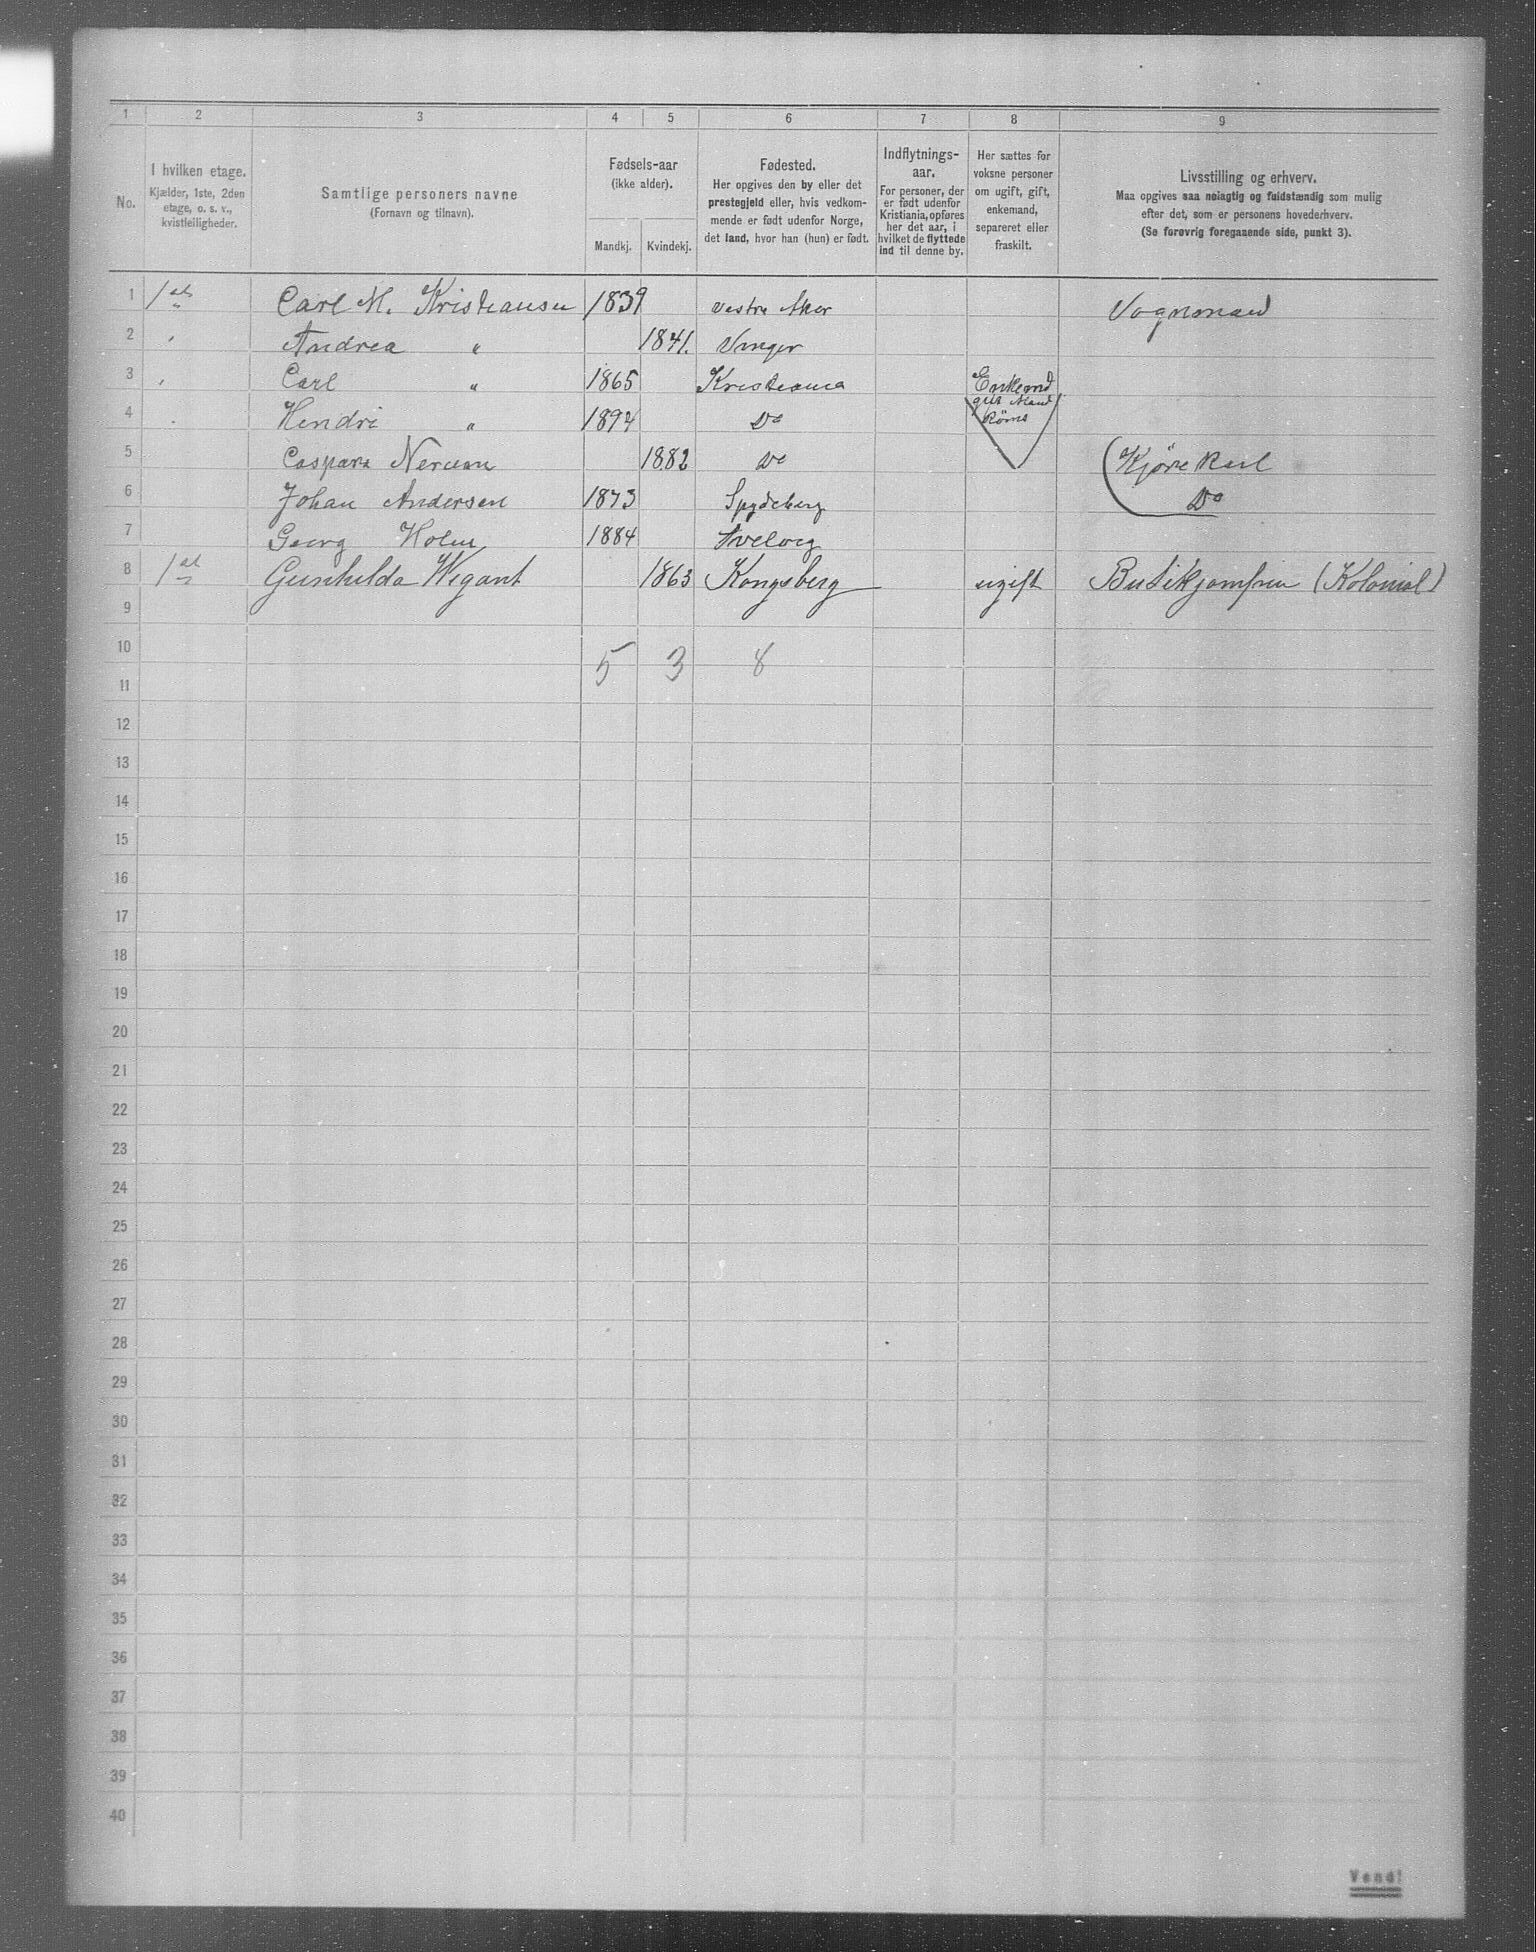 1 2 3 4 5 6 7 8 9
No.
I hvilken etage.
Kjælder, 1ste, 2den
etage, o. s. v.,
kvistleiligheder.
Samtlige personers navne
(Fornavn og tilnavn).
Fødsels-aar
(ikke alder).
Mandkj. Kvindekj.
Fødested.
Her opgives den by eller det
prestegjeld eller, hvis vedkom-
mende er født udenfor Norge,
det land, hvor han (hun) er født.
Indflytnings-
aar.
For personer, der
er født udenfor
Kristiania, opføres
her det aar, i
hvilket de flyttede
ind til denne by.
Her sættes for
voksne personer
om ugift, gift,
enkemand,
separeret eller
fraskilt.
Livsstilling og erhverv.
Maa opgives saa nøiagtig og fuldstændig som mulig
efter det, som er personens hovederhverv.
(Se forøvrig foregaaende side, punkt 3).
1 1 et Carl M. Kristiansen 1839 Vestre Aker Vognmand
2 " Andrea " 1841. Vinger
3 " Carl " 1865 Kristiania Enkemd
4 " Hendri " 1894 Do
5 Caspara 1882 Do Kjørekarl
6 Johan Andersen 1873 Spydeberg Do
7 Georg Holm 1884 Svelvig
8 1 et Gunhilda Wegant 1863 Kongsberg ugift Butikjomfru (Kolonial)
9
10 5 3 8
11
12
13
14
15
16
17
18
19
20
21
22
23
24
25
26
27
28
29
30
31
32
33
34
35
36
37
38
39
40
Vend!